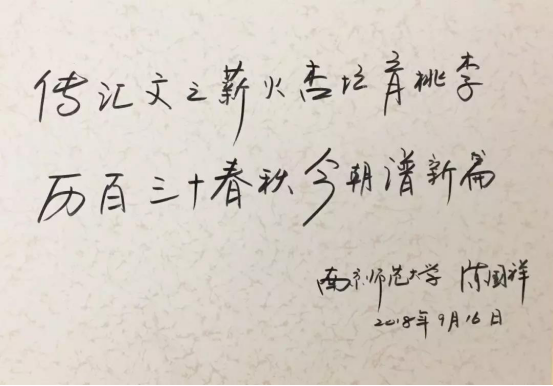 传汇文之薪火杏坛育桃李
历百三十春秋今朝谱新篇
南京师范大学 陈国祥
2018年9月16日